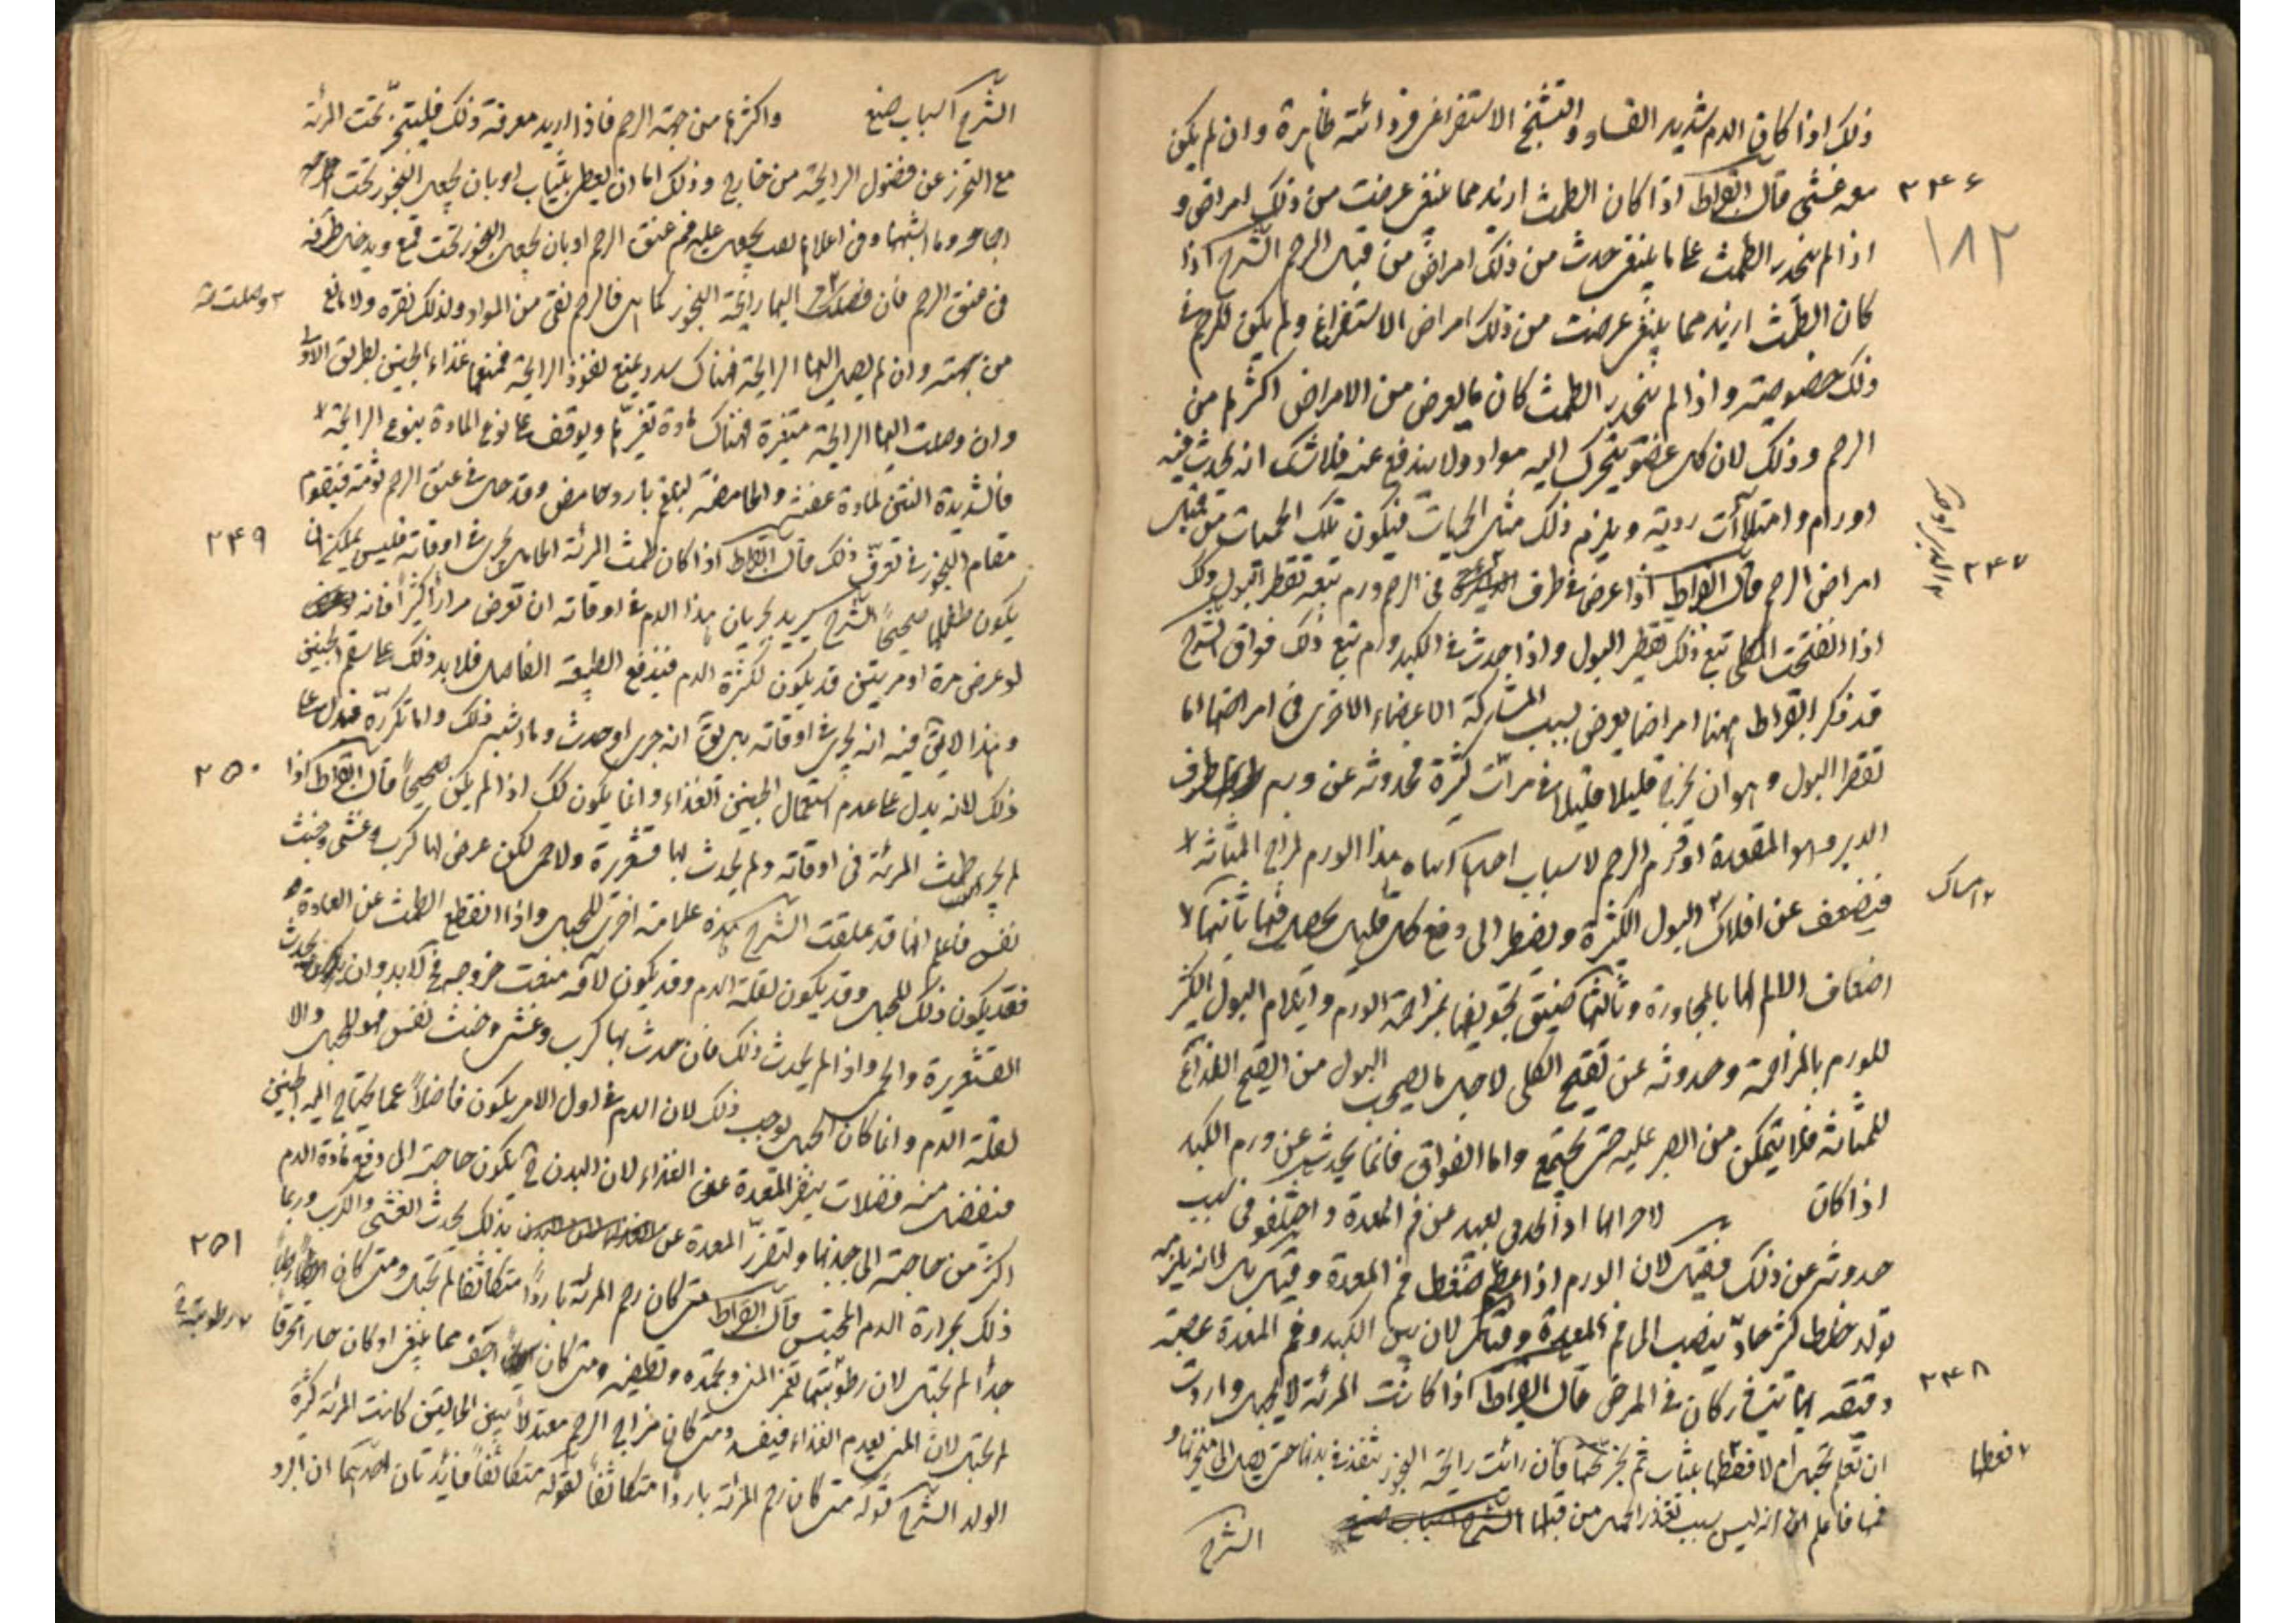 ذلك اذا كان الدم شديد الفساد والتشنج الاستفراغى فرداءته ظاهرة وان لم يكن
٢٤٦
معه غشى قال ابقراط اذا كان الطمث ازيد مما ينبغى عرضت من ذلك امراض و
١٨٢
اذا لم ينحدر الطمث على ما ينبغى حدث من ذلك امراض من قبل الرحم الشرح اذا
كان الطمث ازيد مما ينبغى عرضت من ذلك امراض الاستفراغ ولم يكن للرحم فى
ذلك خصوصية واذا لم ينحدر الطمث كان ما يعرض من الامراض اكثرها من
الرحم وذلك لان كل عضو يتحرك اليه مواد ولا يندفع عنه فلا شك انه يحدث فيه
اورام وامتلاآت ردية ويلزم ذلك مثل الحميات فيكون تلك الحميات من قبيل
٢٤٧
امراض الرحم قال ابقراط اذا عرض فى طرف الدبر او فى الرحم ورم تبعه تقطر البول وكذلك
اذا انفتحت الكلى تبع ذلك تقطر البول واذا حدث فى الكبد ورم تبع ذلك فواق الشرح
قد ذكر ابقراط ههنا امراضا يعرض بسبب المشاركة الاعضاء الاخرى فى امراضها اما
تقطر البول وهو ان يخرج قليلا قليلا فى مرات كثيرة فحدوثه عن ورم طرف
الدبر وهو المقعدة او ورم الرحم لاسباب احدها هذا الورم لمزاج المثانة لا
٢ امساك
فيضعف عن البول الكثيرة ويضطر الى دفع كل قليل يحصل فيها ثانيها لا
اضعاف الالم لها بالمجاورة وثالثها تضيق تجويفها بمزاحمة الورم وايلام البول الكثير
للورم بالمزاحمة وحدوثه عن تقيح الكلى لاجل ما يصحب البول من القيح اللذاع
للمثانة فلا يتمكن من الصبر عليه حتى يجتمع واما الفواق فانما يحدث عن ورم الكبد
اذا كان لاحرالها او الحدبى بعيد عن فم المعدة واختلفو فى سبب
حدوثه عن ذلك فقيل لان الورم اذا عظم ضغط فم المعدة وقيل بل لانه يلزمه
تولد خلط كثير حاد ينصب الى فم المعدة وقيل لان بين الكبد وفم المعدة عصبة
٢٤٨
دقيقة بها يتشاركان فى المرض قال ابقراط اذا كانت المرئة لا تحبل واردت
ان تعلم تحبل ام لا فغطها بثياب ثم بخر تحتها فان رائت رايحة البخور تنفذ فى بدنها حتى يصل الى منخريها و
٢ فغطها
فمها فاعلم انه ليس بسبب تعذر الحبل من قبلها
الشرح
الشرح اسباب منع واكثرها من جهة الرحم فاذا اريد معرفة ذلك فليتبخر تحت المرئة
مع التحرز عن فضول الرايحة من خارج وذلك اما ان يغطى بثياب او بان يجعل البخور تحت
وما اشبهها وفى اعلاها ثقب يجعل عليه فم عنق الرحم او بان يجعل البخور تحت قمع ويدخل طرفه
فى عنق الرحم فان اليها رايحة البخور كما هى فالرحم نقى من المواد ولذلك نقره ولا مانع
٢ وصلت
من جهته وان لم يصل اليها الرايحة فهناك سدد يمنع نفوذ الرايحة فمنعها غذاء الجنين بطريق الاولى
وان وصلت اليها الرايحة متغيرة فهناك مادة تغيرها ويوقف على نوع المادة بنوع الرايحة لا
فالشديدة النتن لمادة عفنة والحامضة لبلغم بارد حامض وقد حل فى عنق الرحم ثومة فيقوم
٢٤٩
مقام البخور فى تعرف ذلك قال ابقراط اذا كان طمث المرئة الحامل يجرى فى اوقاته فليس يمكن ان
يكون طفلها صحيحا الشرح يريد بجريان هذا الدم فى اوقاته ان تعرض مرارا كثيرا فانه
لو عرض مرة او مرتين قد يكون لكثرة الدم فيدفع الطبيعة الفاضل فلا يد ذلك على سقم الجنين
وهذا لا يق فيه انه يجرى فى اوقاته بل يق انه جرى او حدث وما يشبه ذلك واما تكرره فيدل على
٢٥٠
ذلك لانه يدل على عدم استعمال الجنين الغذاء وانما يكون كك اذا لم يكن صحيحا قال ابقراط اذا
لم يجر طمث المرئة فى اوقاته ولم يحدث بها قشعريرة ولا حمى لكن عرض لها كرب وغشى وخبث
نفس فاعلم انها قد علقت الشرح هذه علامة اخرى للحبل واذا انقطع الطمث عن العادة
فقد يكون ذلك للحبل وقد يكون لقلة الدم وقد يكون لآفة منعت خروجه فح لا بد وان يحدث
القشعريرة والحمى واذا لم يحدث ذلك فان حدث بها كرب وغشى وخبث نفس فهو للحبل والا
لقلة الدم وانما كان الحبل يوجب ذلك لان الدم فى اول الامر يكون فاضلا عما يحتاج اليه الجنين
فيفضل منه فضلات ينفر المعدة عن الغذاء لان البدن ح يكون حاجته الى دفع مادة الدم
اكثر من حاجته الى جذبها وتضرر المعدة عن بذلك يحدث الغشى والكرب وربما
٢٥١
ذلك بحرارة الدم المحتبس قال ابقراط متى كان رحم المرئة باردا متكاثفا لم تحبل ومتى كان رطبا
جدا لم تحبل لان رطوبتها تغمر المنى ويجمده وتطفيه ومتى كان اجف مما ينبغى او كان حارا محرقا
٢ رطوبته
لم تحبل لان المنى يعدم الغذاء فيفسد ومتى كان مزاج الرحم معتدلا بين الحالتين كانت المرئة كثيرة
الولد الشرح قوله متى كان رحم المرئة باردا متكاثفا لقوله متكاثفا فائدتان احديهما ان البرد